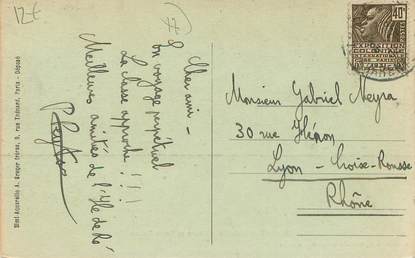 12€
Cher ami -
En voyage perpétuel
La classe approche !!!
Meilleures amitiés de l'Ile de Ré
Monsieur Gabriel Meyra
30 rue Hénon
Lyon - Croix-Rousse
Rhône
40c
POSTES
EXPOSITION
COLONIALE
INTERNATIONALE
PARIS
Mini-Aquarelle A. Breger frères, 9, rue Thénard, Paris - Déposé